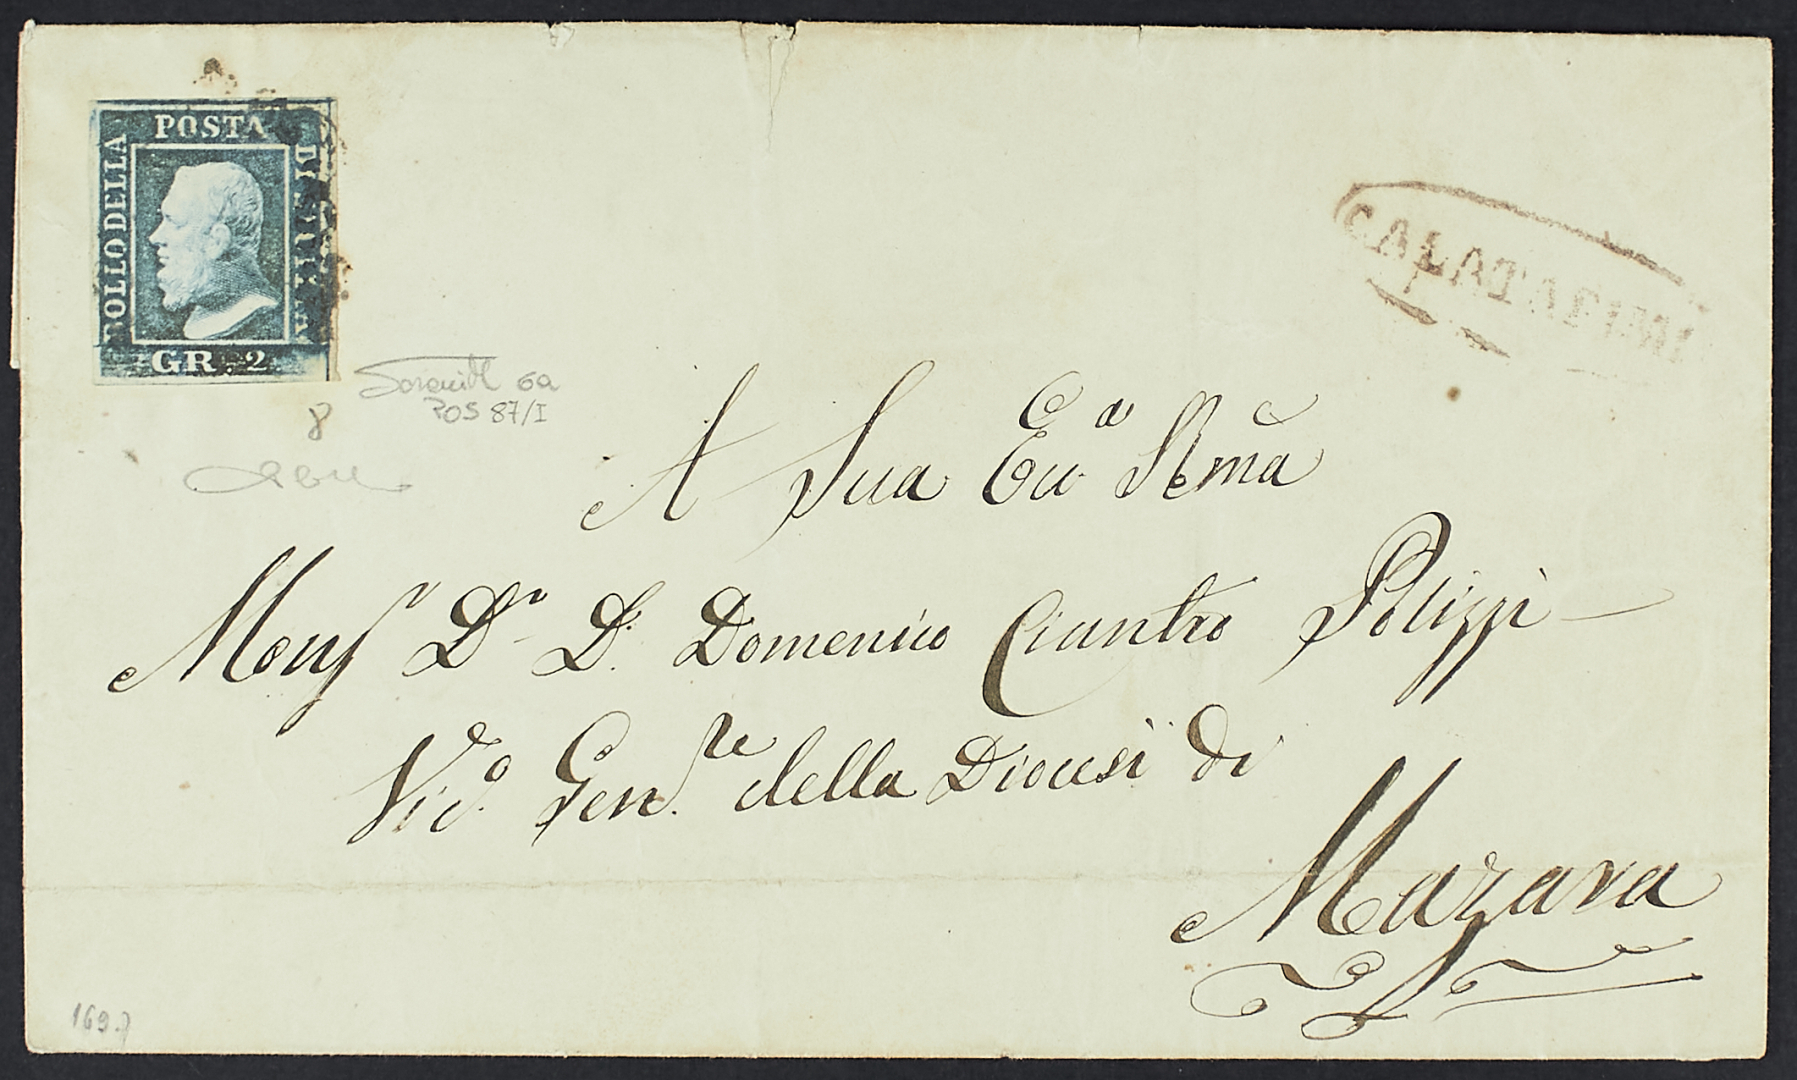 POSTA
BOLLO DELLA
DI SICILIA
GR. 2
CALATAFIMI
6a
POS 87/I
A Sua Ecc.a Rma
Monsr Dr D. Domenico Ciantro Polizzi
Vic.o Gen.le della Diocesi di
Mazara
169.